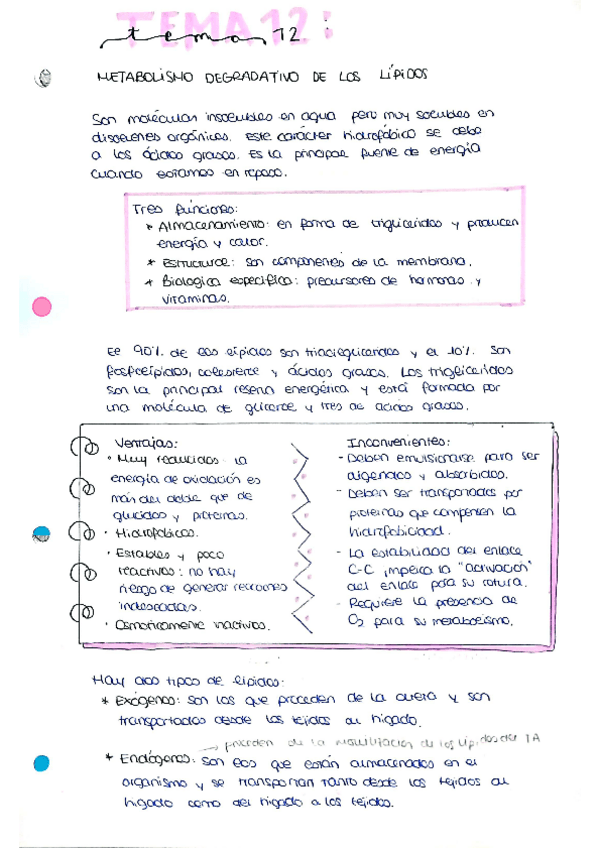 TEMA 12:
tema 12
METABOLISMO DEGRADATIVO DE LOS LÍPIDOS
Son moléculas insolubles en agua pero muy solubles en
disolventes orgánicos. Este carácter hidrofóbico se debe
a los ácidos grasos. Es la principal fuente de energía
cuando estamos en reposo.
Tres funciones:
* Almacenamiento: en forma de triglicéridos y producen
energía y calor.
* Estructural: son componentes de la membrana.
* Biológica específica: precursores de hormonas y
vitaminas.
El 90% de los lípidos son triacilglicéridos y el 10% son
fosfolípidos, colesterol y ácidos grasos. Los triglicéridos
son la principal reserva energética y está formada por
una molécula de glicerol y tres de ácidos grasos.
Ventajas:
· Muy reducidos: la
energía de oxidación es
más del doble que de
glúcidos y proteínas.
· Hidrofóbicos.
· Estables y poco
reactivos: no hay
riesgo de generar reacciones
indeseadas.
· Osmóticamente inactivos.
Inconvenientes:
- Deben emulsionarse para ser
digeridos y absorbidos.
- Deben ser transportados por
proteínas que compensen la
hidrofobicidad.
- La estabilidad del enlace
C-C implica la "activación"
del enlace para su rotura.
- Requiere la presencia de
O2 para su metabolismo.
Hay dos tipos de lípidos:
* Exógenos: son los que proceden de la dieta y son
transportados desde los tejidos al hígado.
→ proceden de la movilización de los lípidos del TA
* Endógenos: son los que están almacenados en el
organismo y se transportan tanto desde los tejidos al
hígado como del hígado a los tejidos.